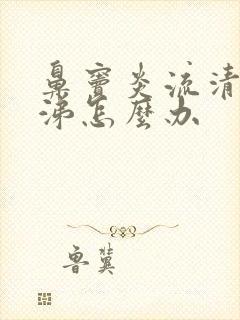 鼻窦炎流清
涕怎麼办
鲁冀